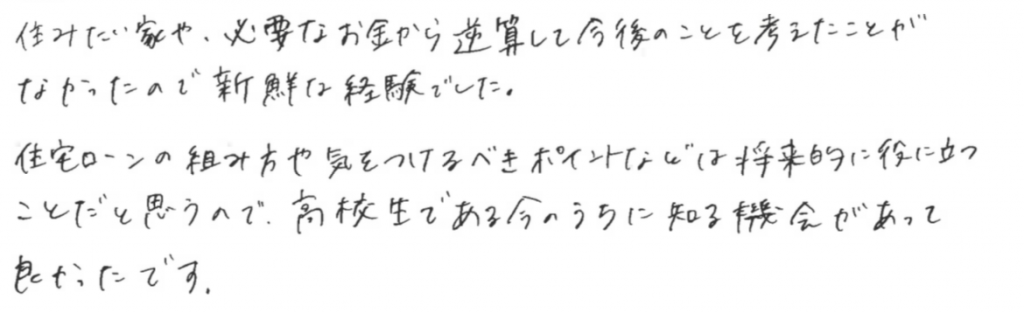 住みたい家や、必要なお金から逆算して今後のことを考えたことが
なかったので新鮮な経験でした。
住宅ローンの組み方や気をつけるべきポイントなどは将来的に役に立つ
ことだと思うので、高校生である今のうちに知る機会があって
良かったです。